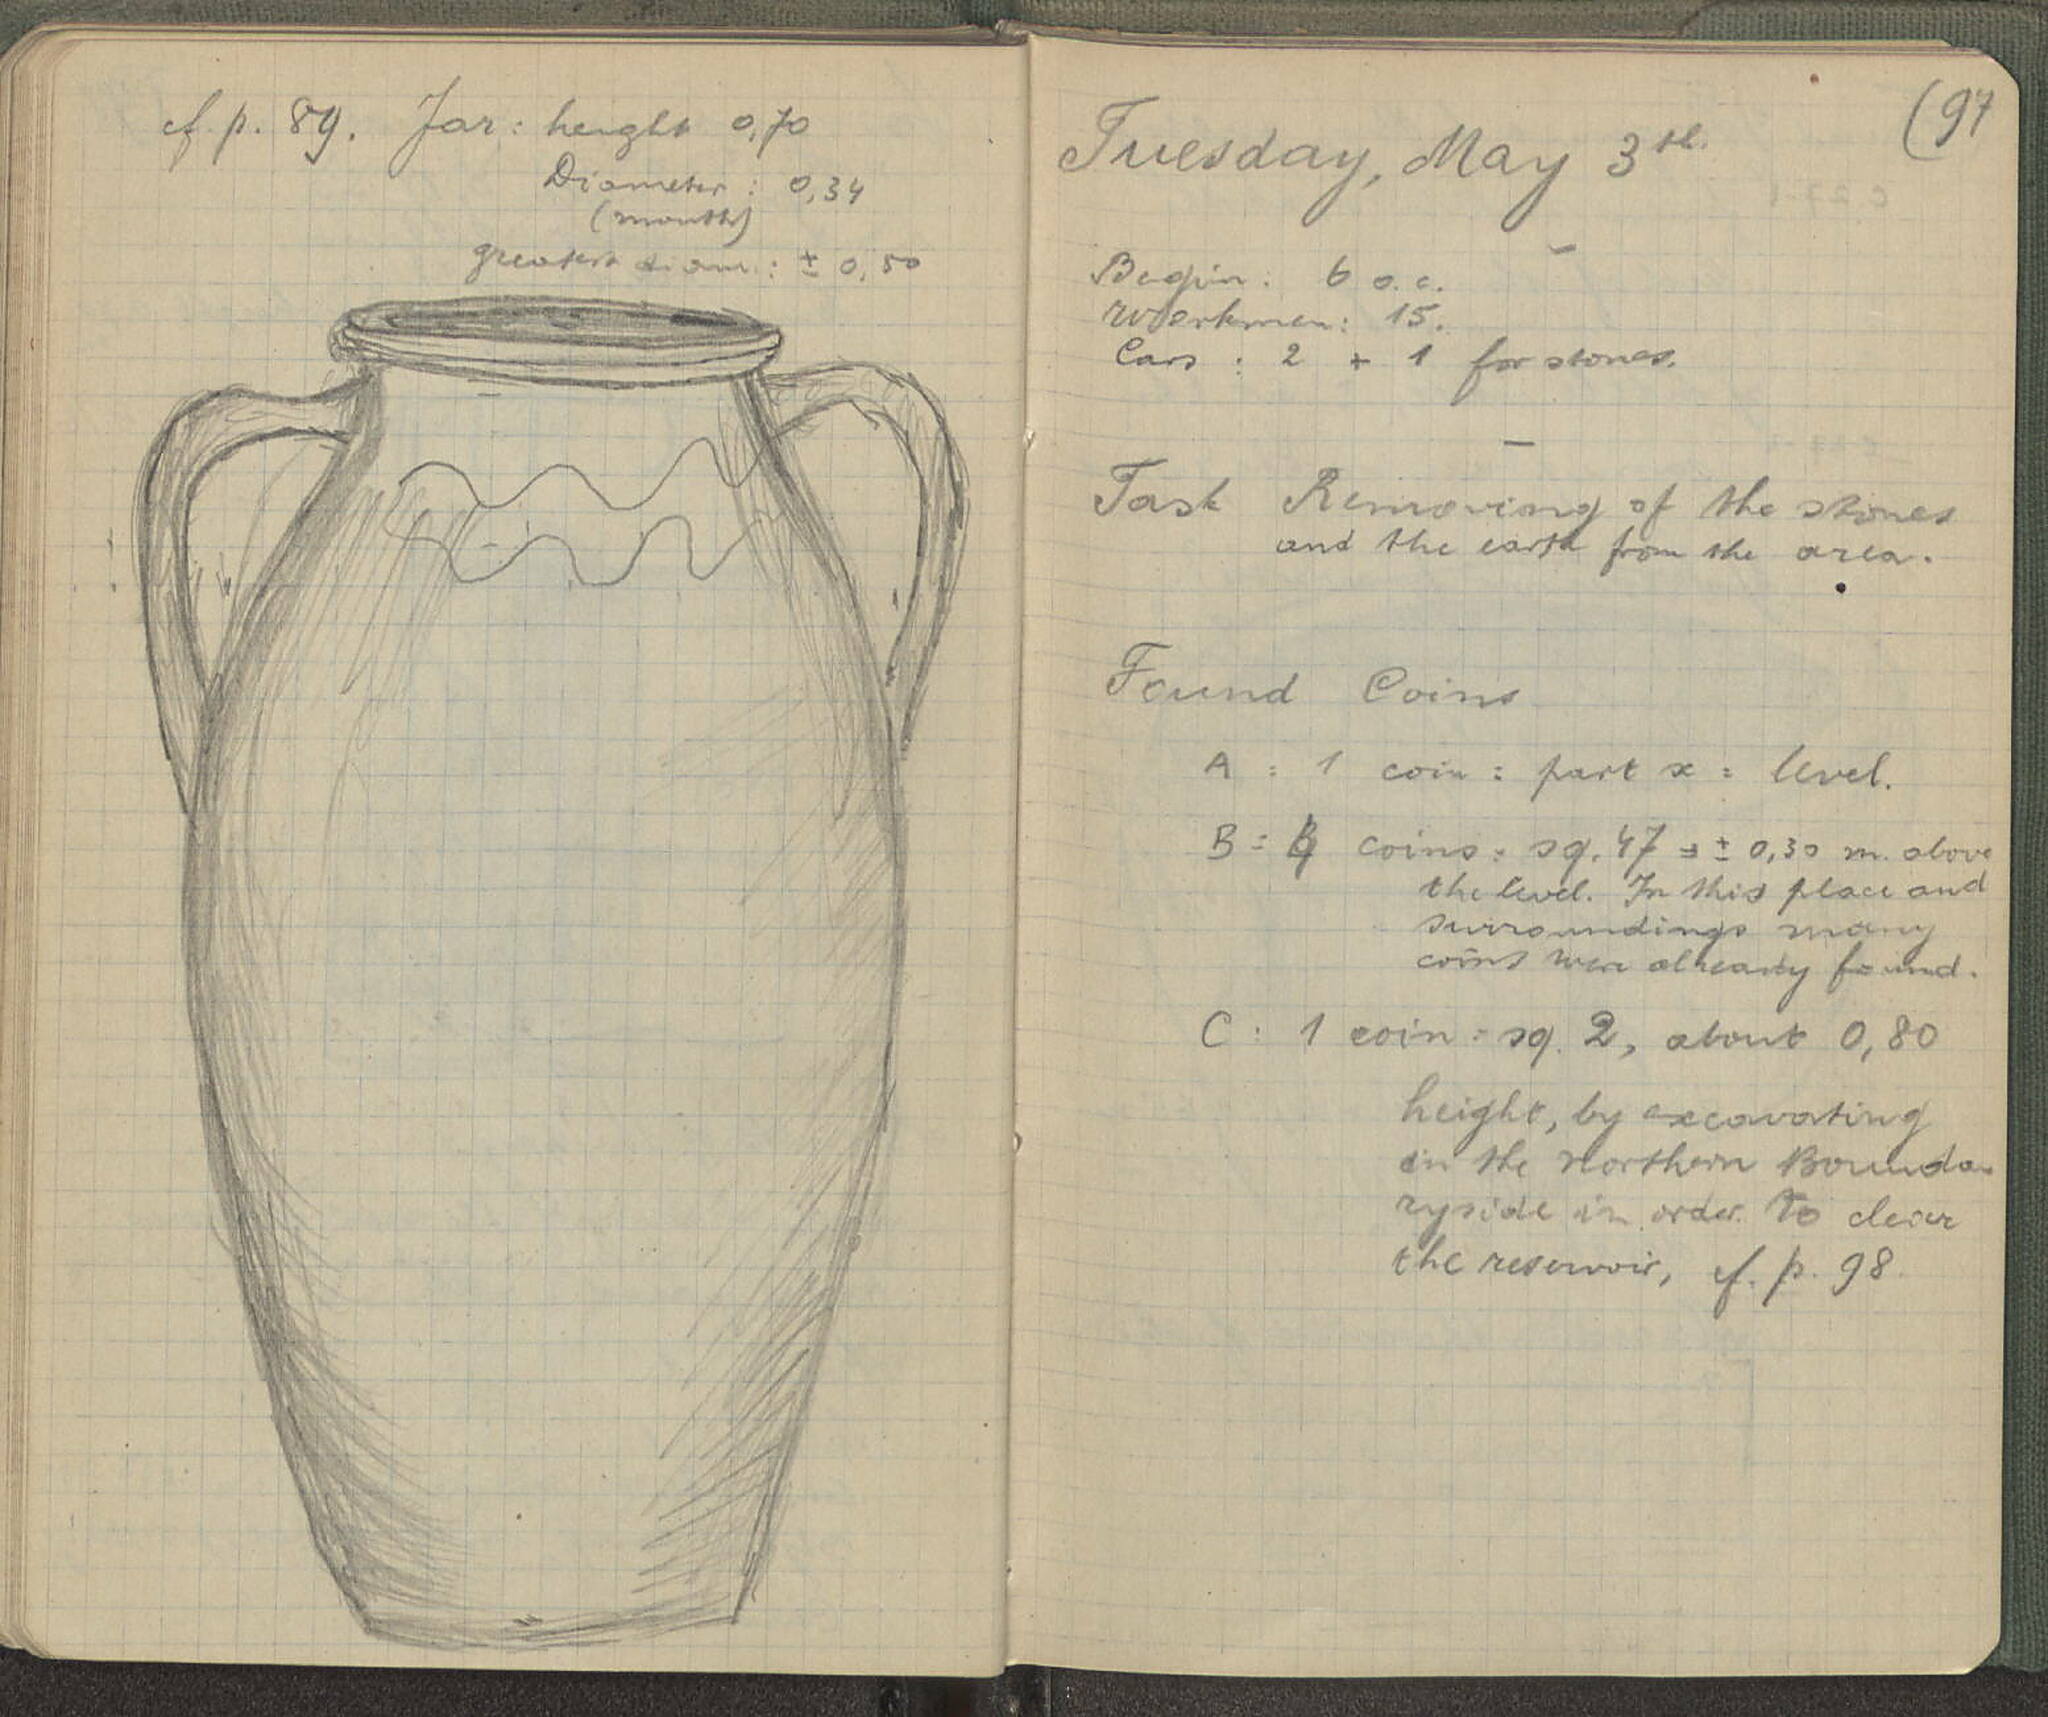 cf. p. 89. Jar: height 0,70
Diameter: 0,34
(mouth)
greatest diam.: ± 0,50
(97
Tuesday, May 3th.
Begin: 6 o.c.
Workmen: 15.
Cars: 2 + 1 for stones.
Task Removing of the stones
and the earth from the area.
Found Coins
A = 1 coin = part x = level.
B = coins = sq. 47 = ± 0,30 m. above
the level. In this place and
surroundings many
coins were already found.
C: 1 coin = sq. 2, about 0,80
height, by excavating
in the Northern Bounda
ryside in order to clear
the reservoir, cf. p. 98